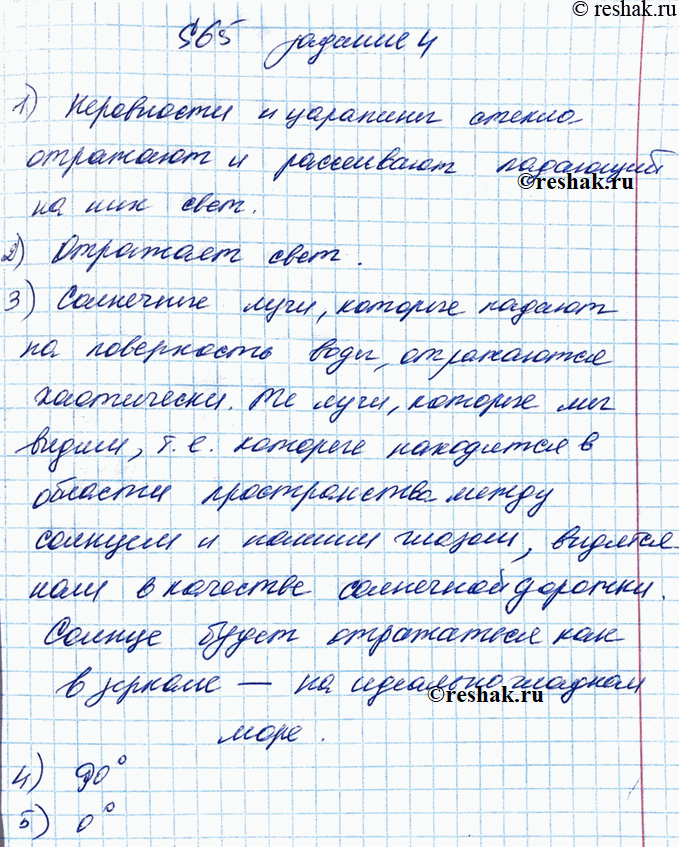 © reshak.ru
§65 задание 4
1) Неровности и царапины стекла
отражают и рассеивают падающий
©reshak.ru
на них свет.
2) Отражает свет.
3) Солнечные лучи, которые падают
на поверхность воды, отражаются
хаотически. Те лучи, которые мы
видим, т.е. которые находятся в
области пространства между
солнцем и нашим глазом, видятся
нами в качестве солнечной дорожки.
Солнце будет отражаться как
в зеркале — на идеально гладком
©reshak.ru
море.
4) 90°
5) 0°